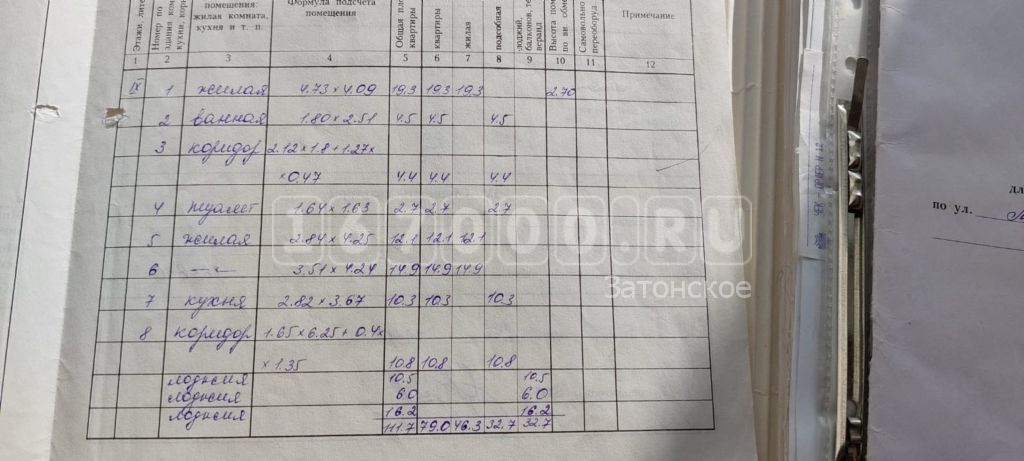 Этажи, лите
Номер по
здания ком
кухни, кори
помещения:
жилая комната,
кухня и т. п.
Формула подсчета
помещения
Общая пло
квартиры
квартиры
жилая
подсобная
лоджий,
балконов, те
веранд
Высота пом
по вн обме
Самовольно
переоборуд.
Примечание
1 2 3 4 5 6 7 8 9 10 11 12
IX 1 жилая 4.73 × 4.09 19.3 19.3 19.3 2.70
2 ванная 1.80 × 2.51 4.5 4.5 4.5
3 коридор 2.12 × 1.8 + 1.27 ×
× 0.47 4.4 4.4 4.4
4 туалет 1.64 × 1.63 2.7 2.7 2.7
5 жилая 2.84 × 4.25 12.1 12.1 12.1
6 —"— 3.51 × 4.24 14.9 14.9 14.9
7 кухня 2.82 × 3.67 10.3 10.3 10.3
8 коридор 1.65 × 6.25 + 0.4 ×
× 1.35 10.8 10.8 10.8
лоджия 10.5 10.5
лоджия 6.0 6.0
лоджия 16.2 16.2
111.7 79.0 46.3 32.7 32.7
Затонское
дл
по ул.